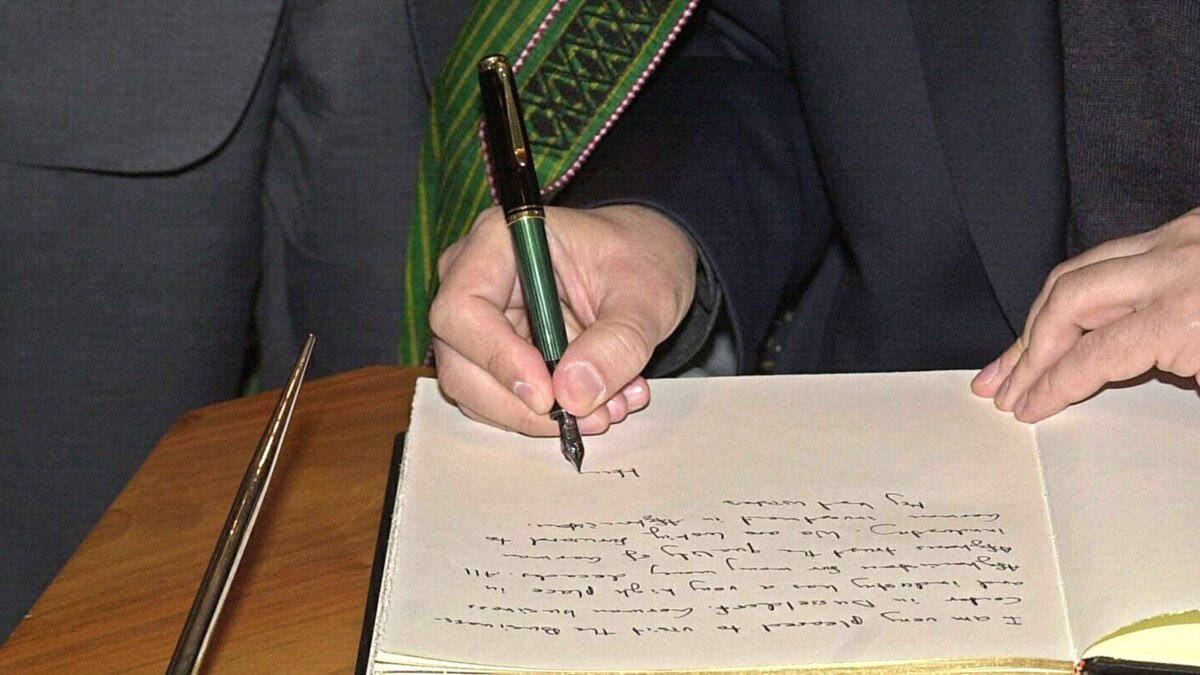 I am very pleased to visit the Business
Center in Dusseldorf. German business
and industry has a very high place in
Afghanistan for many many decades. All
Afghans trust the quality of German
industry. We are looking forward to
German investment in Afghanistan.
My best wishes